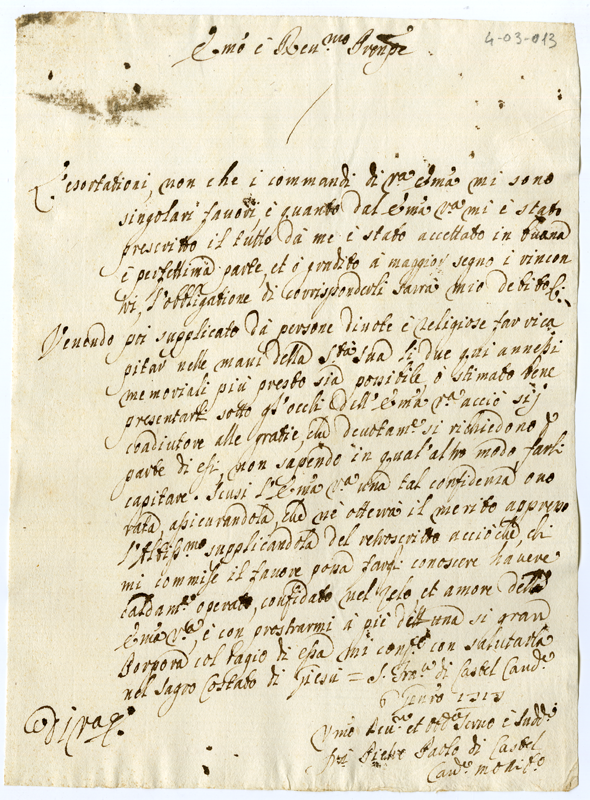 4-03-013
Emo e Reu.mo Prnpe
L'esortationi, non che i commandi di Va Ema mi sono
singolari fauori e quanto dal Ema Va mi è stato
prescritto il tutto da me è stato accettato in buona
e perfettima parte, et ò gradito a maggior segno i rincon
tri, l'obbligatione di corrisponderli sarrà mio debito
Venendo poi supplicato da persone diuote e religiose far rica
pitar nelle mani della Sta Sua li due qui annessi
memoriali più presto sia possibile, ò stimato bene
presentarli sotto gl'occhi dell'Ema Va acciò sij
coadiutore alle gratie, che deuotame si richiedono
parte di essi, non sapendo in qual'altro modo farli
capitare. Scusi l'Ema Va una tal confidenza, ono
rata, assicurandola, che ne otterrà il merito appresso
l'Altissmo supplicandola del retroscritto acciochè, chi
mi commise il fauore possa farli conoscere hauere
caldame operato, confidato nel zelo et amore della
Ema Va, e con prostrarmi a piè dell'una si gran
Porpora col bagio di essa mi confo con salutarla
nel sagro Costato di Giesù = S. Franco di Castel Cando
Genro 1717
Di Va Ema
Vmo Deuo et Obbo Seruo e Suddo
fra Pietro Paolo di Castel
Cando